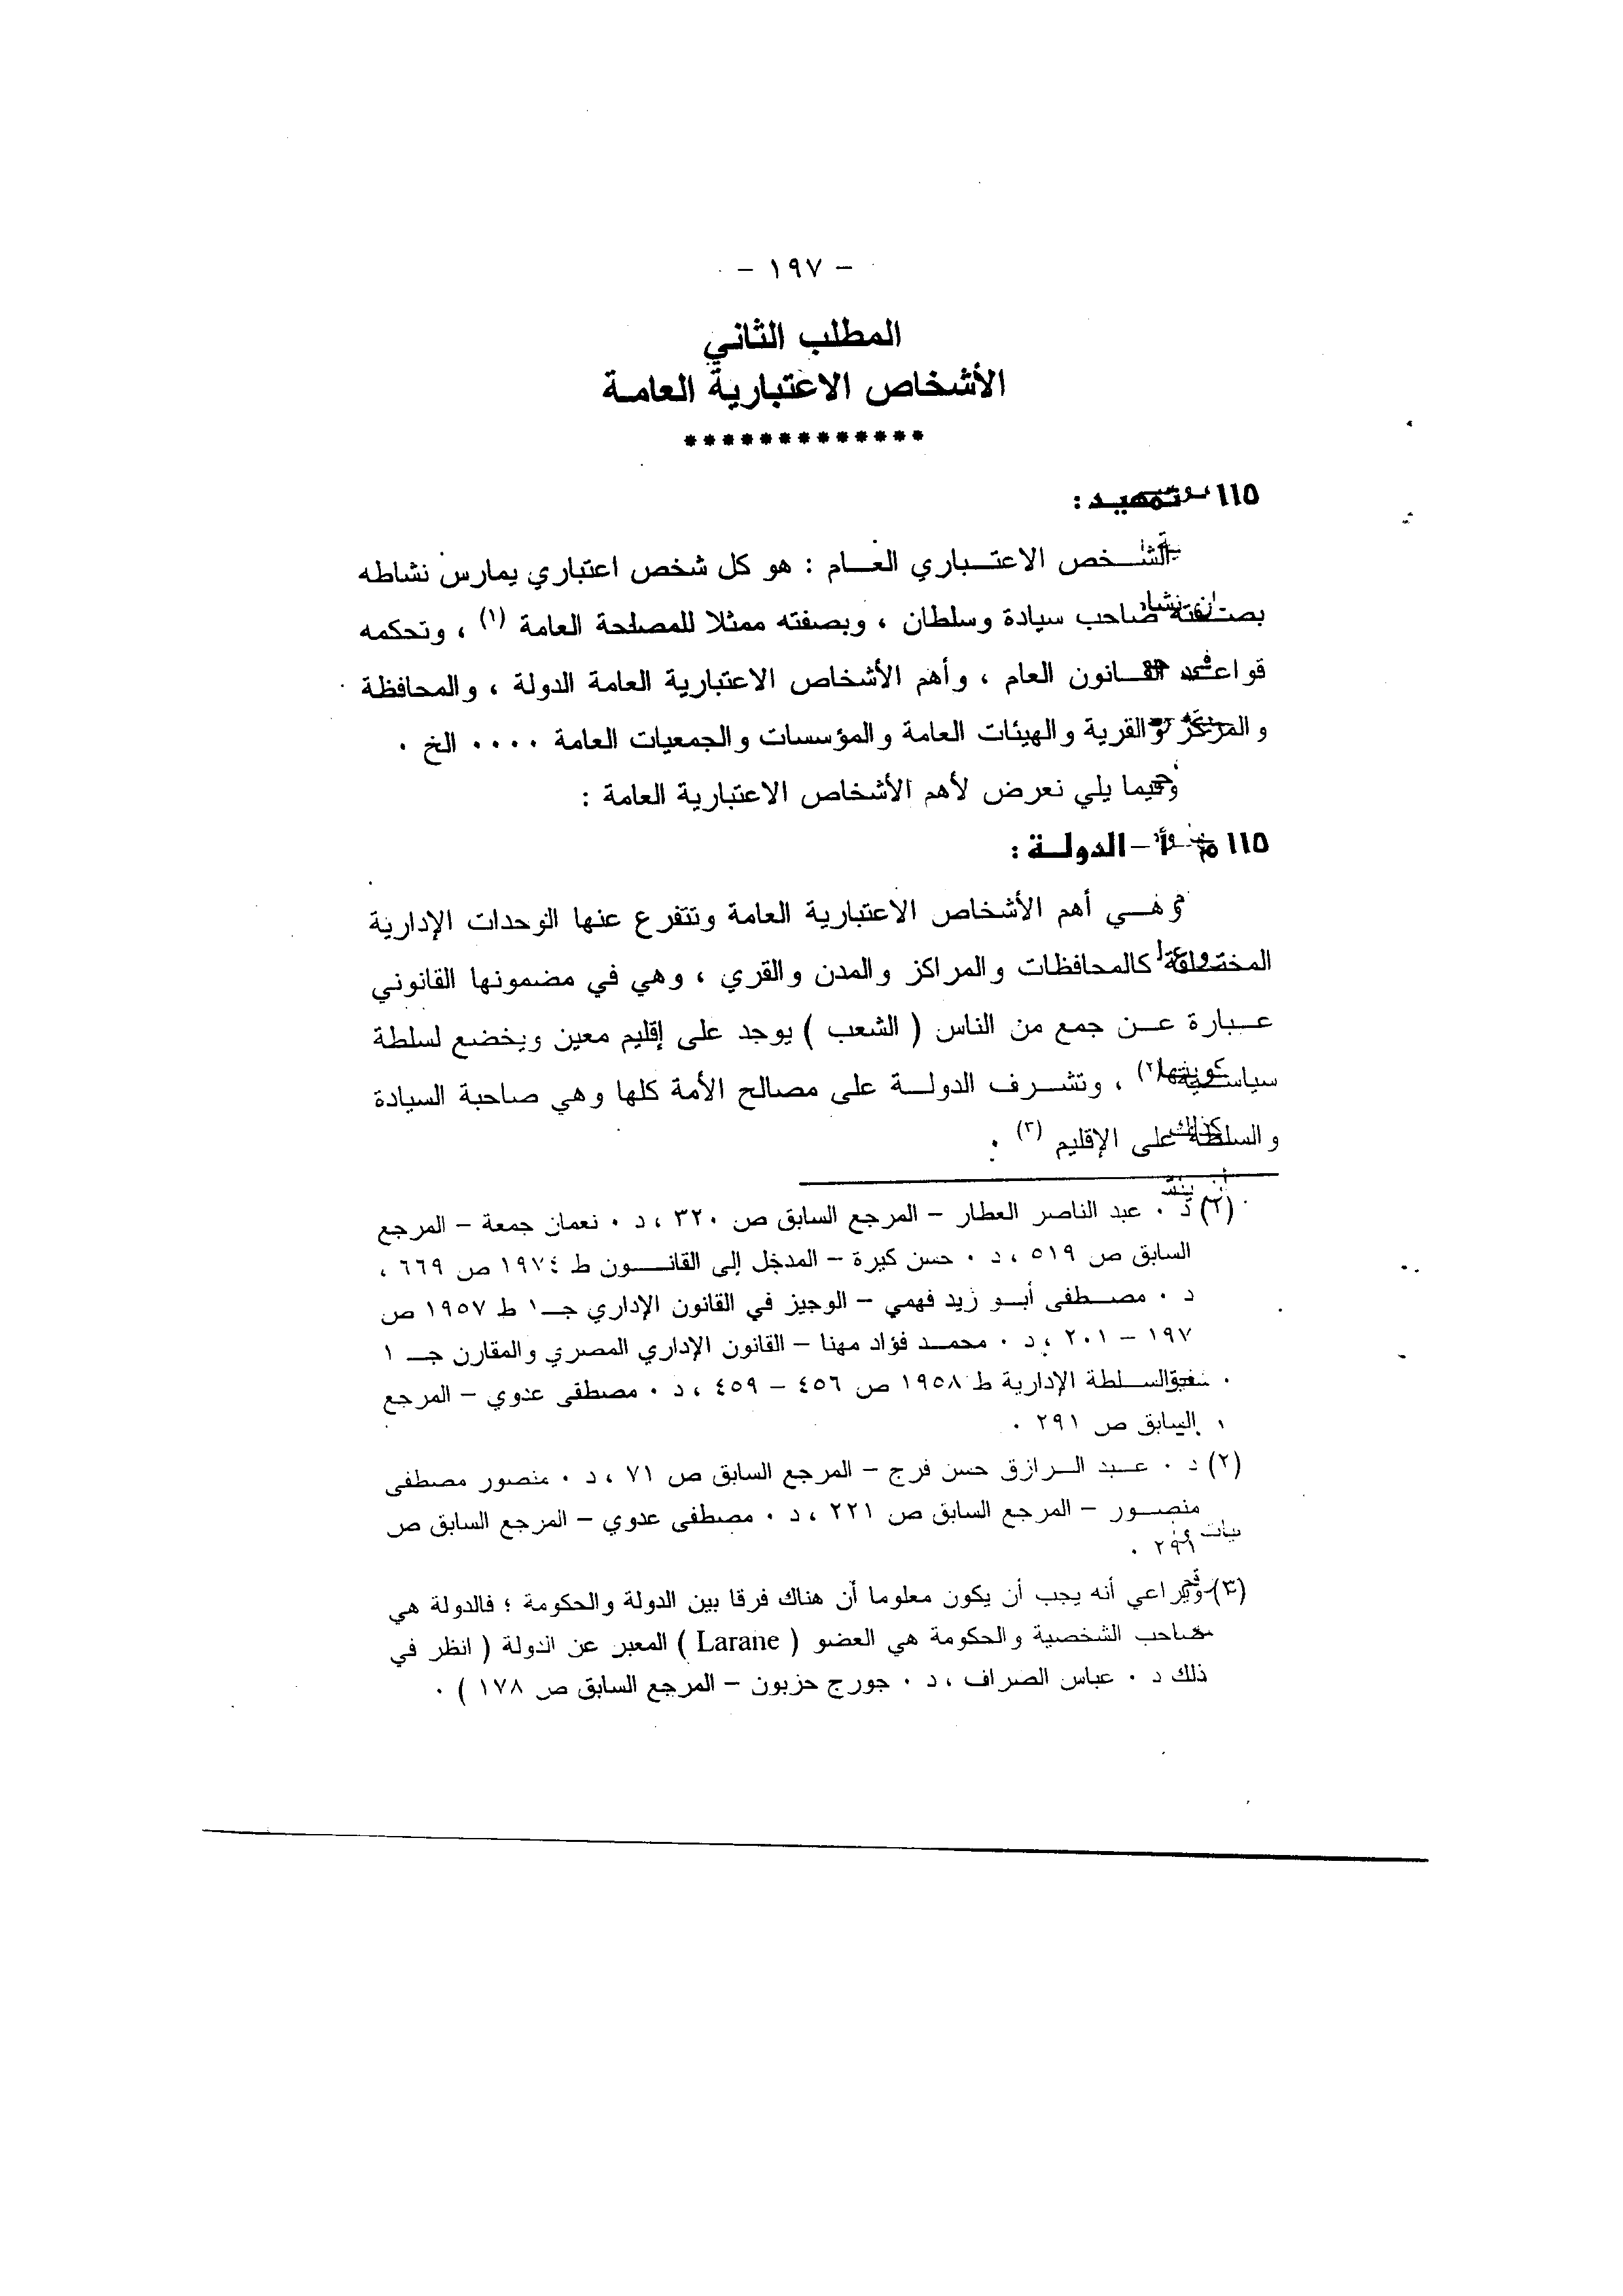 - ١٩٧ -
المطلب الثاني
الأشخاص الاعتبارية العامة
*************
١١٥ - تمهيد :
الشخص الاعتباري العام : هو كل شخص اعتباري يمارس نشاطه
بصفته صاحب سيادة وسلطان ، وبصفته ممثلا للمصلحة العامة (١) ، وتحكمه
قواعد القانون العام ، وأهم الأشخاص الاعتبارية العامة الدولة ، والمحافظة
والمركز والقرية والهيئات العامة والمؤسسات والجمعيات العامة ٠٠٠٠ الخ ٠
وفيما يلي نعرض لأهم الأشخاص الاعتبارية العامة :
١١٥ م - أ - الدولة :
وهي أهم الأشخاص الاعتبارية العامة وتتفرع عنها الوحدات الإدارية
المختلفة كالمحافظات والمراكز والمدن والقري ، وهي في مضمونها القانوني
عبارة عن جمع من الناس ( الشعب ) يوجد على إقليم معين ويخضع لسلطة
سياسية (٢) ، وتشرف الدولة على مصالح الأمة كلها وهي صاحبة السيادة
والسلطة على الإقليم (٣) ٠
د ٠ عبد الناصر العطار – المرجع السابق ص ٣٢٠ ، د ٠ نعمان جمعة – المرجع
السابق ص ٥١٩ ، د ٠ حسن كيرة – المدخل إلى القانون ط ١٩٧٤ ص ٦٦٩ ،
د ٠ مصطفى أبو زيد فهمي – الوجيز في القانون الإداري جـ ١ ط ١٩٥٧ ص
١٩٧ – ٢٠١ ، د ٠ محمد فؤاد مهنا – القانون الإداري المصري والمقارن جـ ١
السلطة الإدارية ط ١٩٥٨ ص ٤٥٦ – ٤٥٩ ، د ٠ مصطفى عدوي – المرجع
السابق ص ٢٩١ ٠
(٢) د ٠ عبد الرازق حسن فرج – المرجع السابق ص ٧١ ، د ٠ منصور مصطفى
منصور – المرجع السابق ص ٢٢١ ، د ٠ مصطفى عدوي – المرجع السابق ص
٢٩١ ٠
(٣) ويراعي أنه يجب أن يكون معلوما أن هناك فرقا بين الدولة والحكومة ؛ فالدولة هي
صاحب الشخصية والحكومة هي العضو ( Larane ) المعبر عن الدولة ( انظر في
ذلك د ٠ عباس الصراف ، د ٠ جورج حزبون – المرجع السابق ص ١٧٨ ) ٠